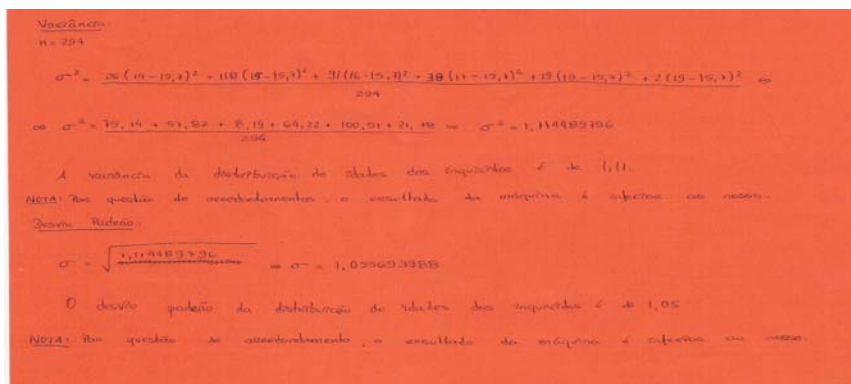 Variância:
n = 294
σ² = 26(14-15,7)² + 118(15-15,7)² + 91(16-15,7)² + 38(17-15,7)² + 19(18-15,7)² + 2(19-15,7)² ⇔
294
⇔ σ² = 75,14 + 57,82 + 8,19 + 64,22 + 100,51 + 21,78 ⇔ σ² = 1,114489796
294
A variância da distribuição de idades dos inquiridos é de 1,11.
NOTA: Por questão de arredondamentos, o resultado da máquina é inferior ao nosso.
Desvio Padrão:
σ = √1,114489796 ⇔ σ = 1,055693988
O desvio padrão da distribuição de idades dos inquiridos é de 1,05
NOTA: Por questão de arredondamento, o resultado da máquina é inferior ao nosso.